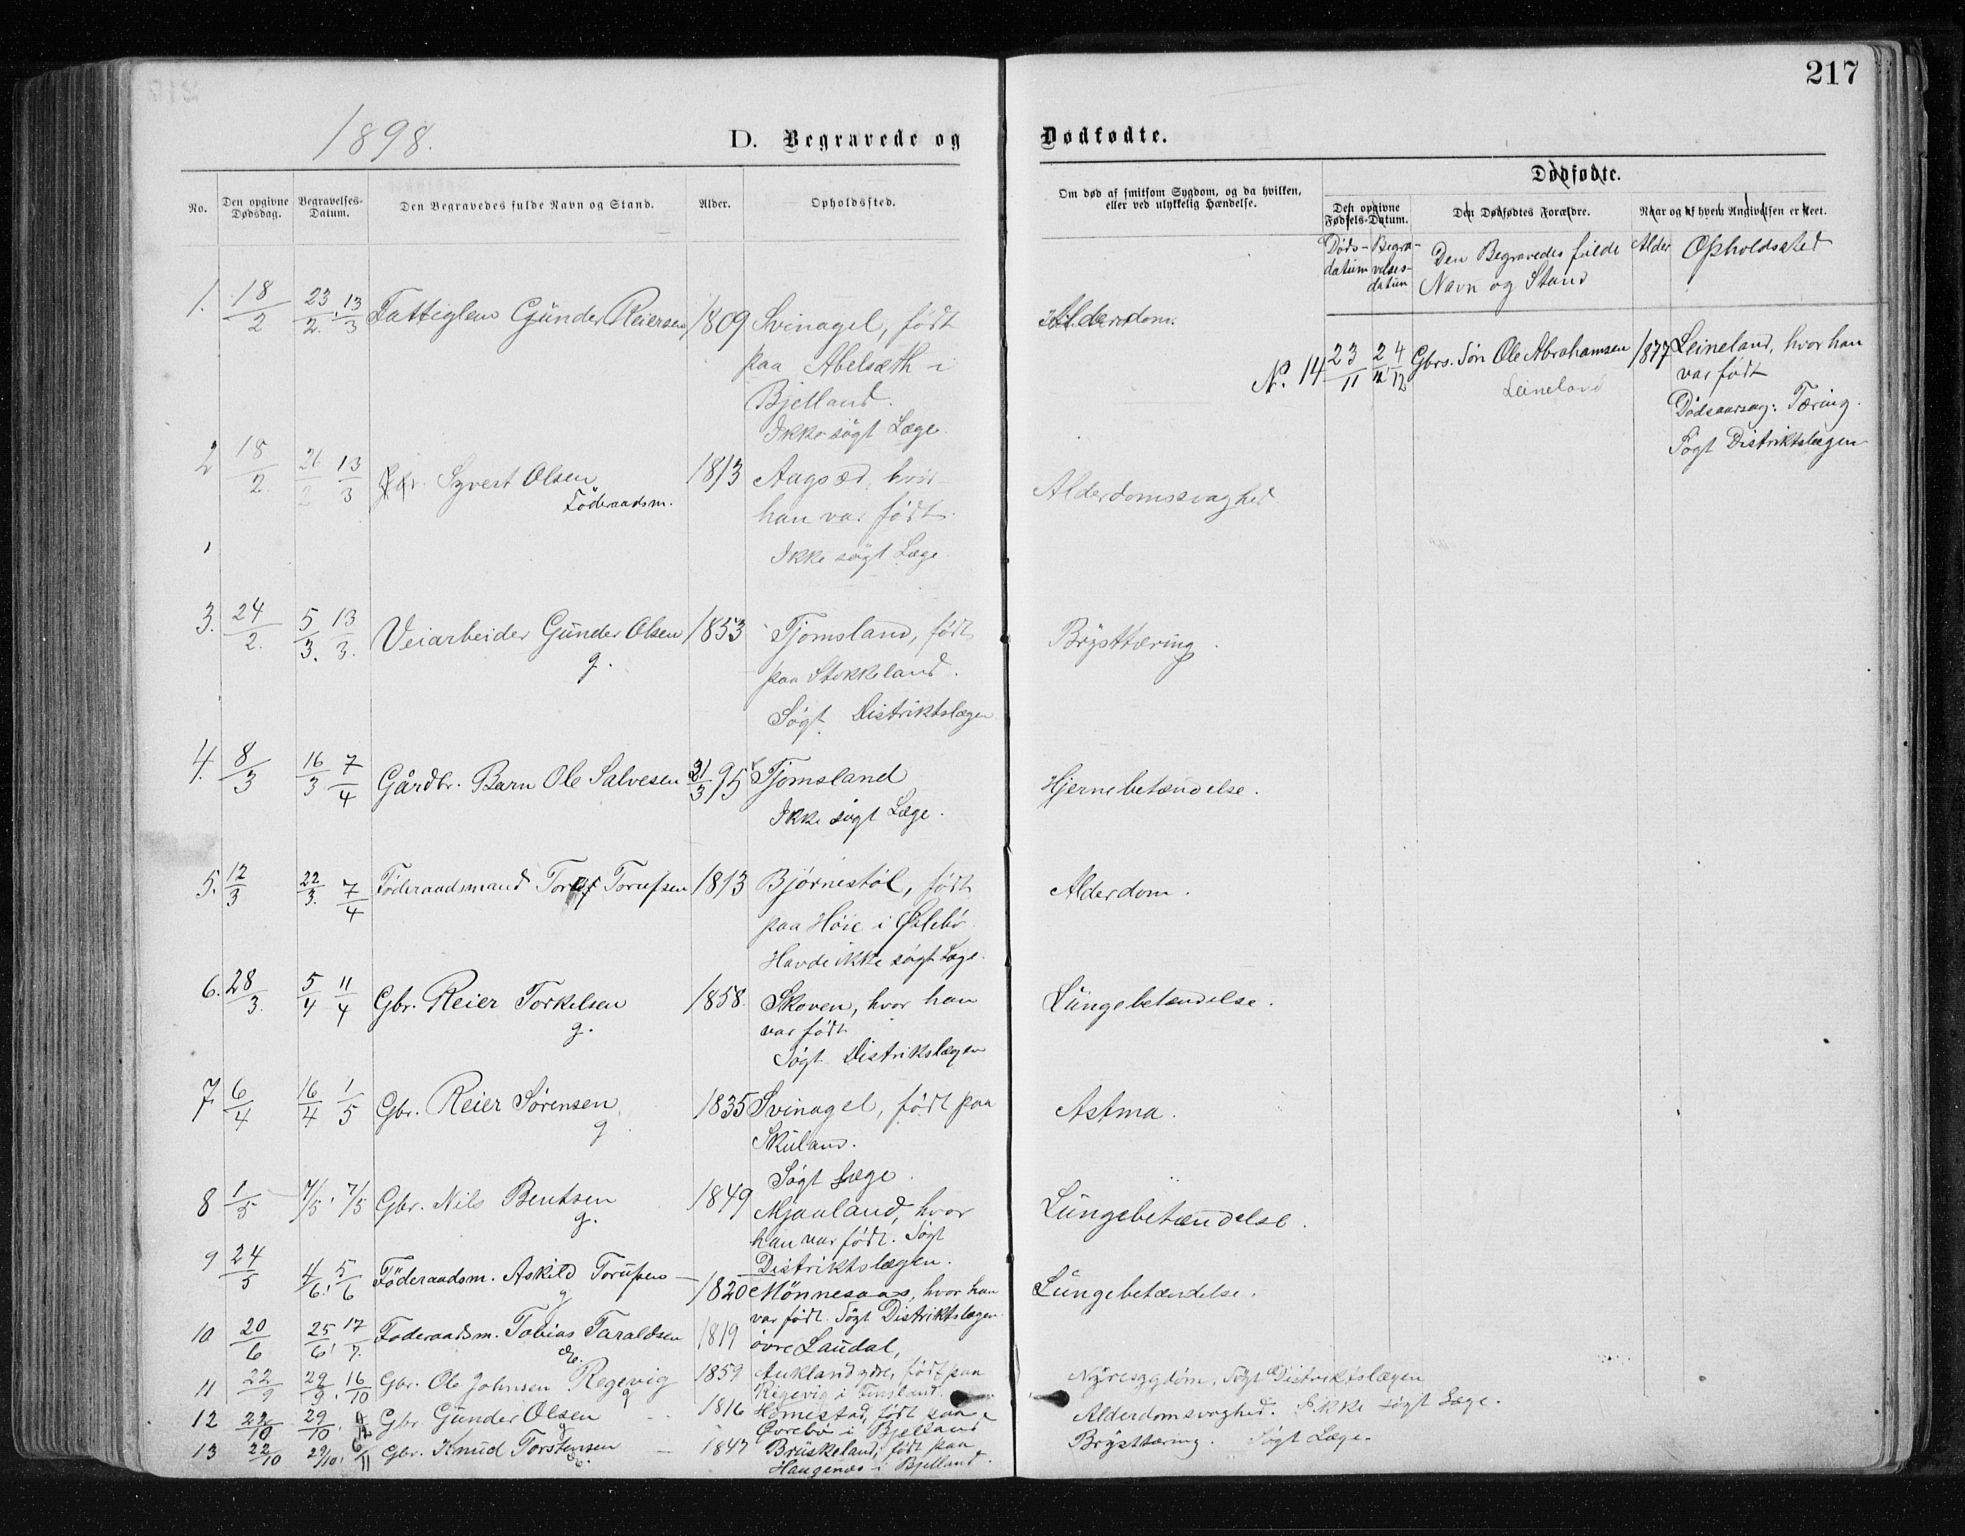 217
1898.
D. Begravede og Dødfødte.
No.
Den opgivne Dødsdag.
Begravelses-Datum.
Den Begravedes fulde Navn og Stand.
Alder.
Opholdssted.
Om død af smitsom Sygdom, og da hvilken, eller ved ulykkelig Hændelse.
Dødfødte.
Den opgivne Fødsels-Datum.
Den Dødfødtes Forældre.
Naar og af hvem Angivelsen er skeet.
Døds-datum
Begravelses-datum
Den Begravedes fulde Navn og Stand
Alder
Opholdssted
1. 18/2 23/2. 13/3 Fattiglem Günder Reiersen 1809 Svinagel, født
paa Abelsæth i
Bjelland.
Ikke søgt Læge
Alderdom.
N. 14 23/11 24/12 Gbrs. Søn Ole Abrahamsen 1877 Leineland, hvor han
Leineland
var født
Dødsaarsag: Tæring.
Søgt Distriktslægen
2 18/2. 26/2 13/3 Gbr. Syvert Olsen 1813 Aagsæd, hvor
Föderaadsm.
han var født.
Ikke søgt Læge
Alderdomssvaghed
3. 24/2. 5/3. 13/3. Veiarbeider Günder Olsen 1853 Tjomsland, født
g.
paa Stokkeland.
Søgt Distriktslægen
Brysttæring.
4. 8/3 16/3 7/4 Gårdbr. Barn Ole Salvesen 21/3 95 Tjomsland
Ikke søgt Læge.
Hjernebetændelse.
5. 12/3 22/3. 7/4 Föderaadsmand Toruf Torufsen 1813 Bjørnestøl, født
paa Høie i Øslebö.
Havde ikke søgt Læge.
Alderdom.
6. 28/3. 5/4 11/4 Gbr. Reier Torkelsen 1858. Skoven, hvor han
g.
var født
Søgt Distrikslægen
Lüngebetændelse.
7 6/4 16/4 1/5 Gbr. Reier Sørensen 1835 Svinagel, født paa
g
Sküland.
Søgt Læge.
Astma.
8 1/5 7/5. 7/5 Gbr. Nils Bentsen 1849 Mjaaland, hvor
g.
han var født. Søgt
Distriktslægen.
Lüngebetændelse.
9 24/5 4/6. 5/6 Föderaadsm. Askild Torüfsen 1820 Mønnesaas, hvor han
g
var født. Søgt Distriktslægen.
Lüngebetændelse.
10 20/6 25/6. 17/7. Föderaadsm. Tobias Taraldsen 1819 øvre Laüdal,
11 22/9 29/9. 16/10 Gbr. Ole Johnsen Regevig 1859 Aukland ydre, født paa
g
Regevig i Finsland.
Nyresygdom. Søgt Distriktslægen
12 22/10 29/10. Gbr. Günder Olsen 1816 Homestad, født paa
g
Øvrebø i Bjelland
Alderdomsvaghed. Ikke søgt Læge.
13 22/10 29/10. 6/11 Gbr. Knud Torstensen 1847 Brüskeland, født paa
Haugenæs i Bjelland.
Brysttæring. Søgt Læge.